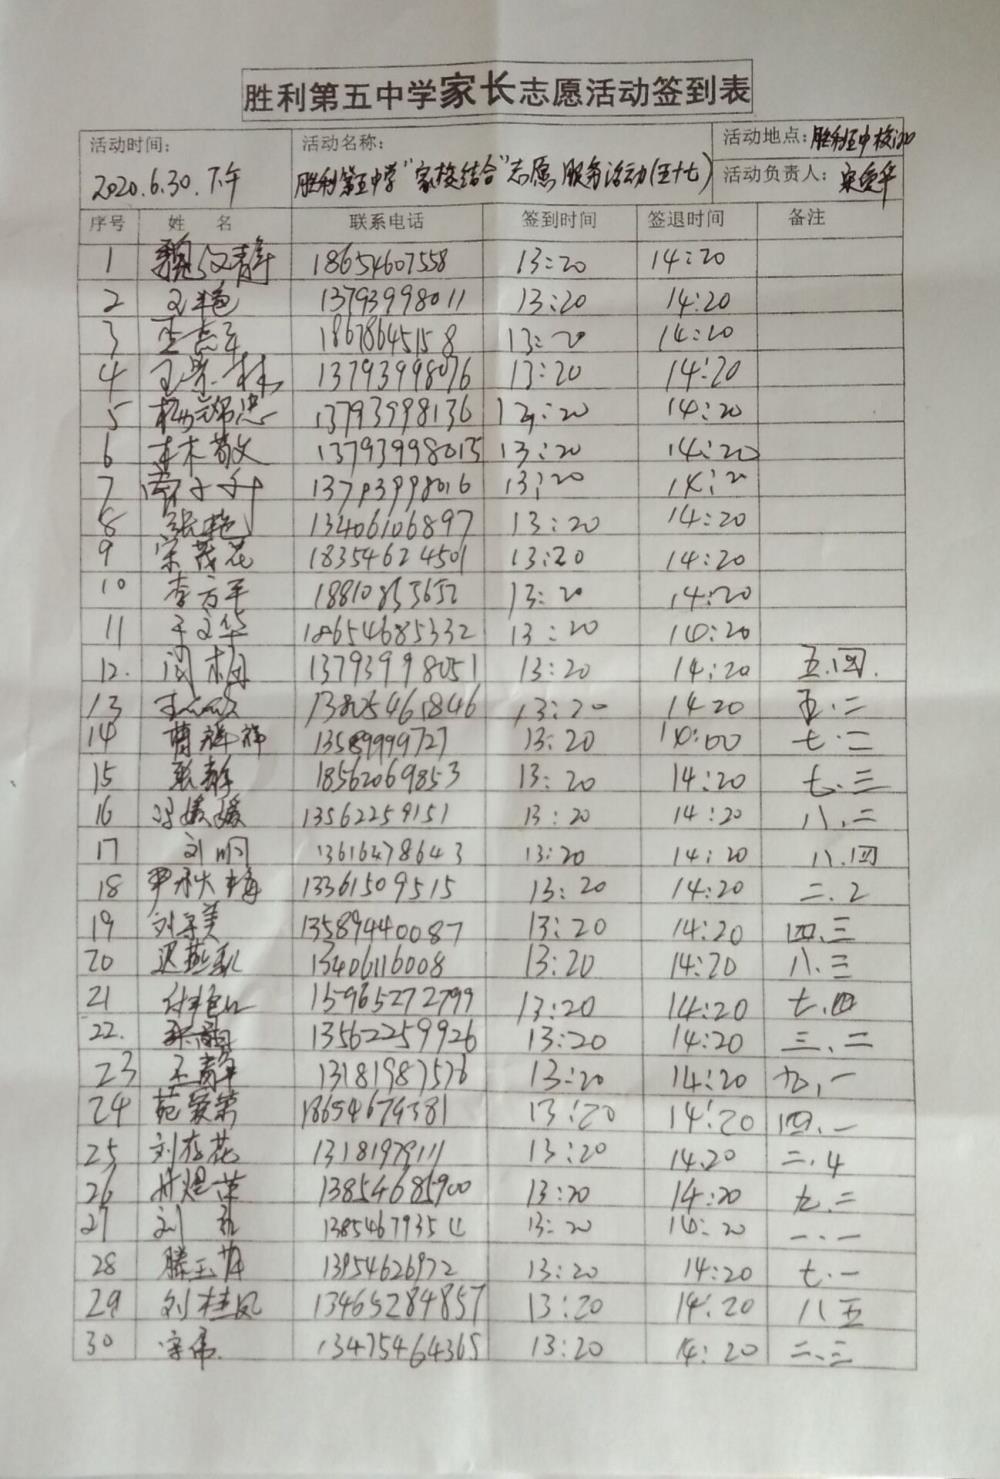 胜利第五中学家长志愿活动签到表
活动时间: 活动名称: 活动地点: 胜利五中校门口
2020.6.30.下午 胜利第五中学“家校结合”志愿服务活动(五十七) 活动负责人:
序号 姓 名 联系电话 签到时间 签退时间 备注
1 魏文静 18654607558 13:20 14:20
2 王艳 13793998011 13:20 14:20
3 18678645158 13:20 14:20
4 王景林 13793998076 13:20 14:20
5 杨锦忠 13793998136 13:20 14:20
6 林敬文 13793998015 13:20 14:20
7 13793998016 13:20 14:20
8 张艳 13406106897 13:20 14:20
9 宋茂花 18354624501 13:20 14:20
10 李方平 13:20 14:20
11 于文华 18654685332 13:20 14:20
12. 闫楠 13793998051 13:20 14:20 五.四.
13 13805461846 13:20 1420 五.二
14 曹辉祥 13589999727 13:20 14:00 七.二
15 张静 18562069853 13:20 14:20 七.三
16 冯媛媛 13562259151 13:20 14:20 八.二
17 刘明 13616478643 13:20 14:20 八.四
18 尹秋梅 13361509515 13:20 14:20 二.2
19 刘子美 13589440087 13:20 14:20 四.三
20 迟燕凯 13406116008 13:20 14:20 八.三
21 15965272799 13:20 14:20 七.四
22. 13562259926 13:20 14:20 三.二
23 王青年 13181987576 13:20 14:20 九.一
24 苑爱荣 18654679381 13:20 14:20 四.一
25 刘存花 13181979111 13:20 14.20 二.4
26 13854685900 13:20 14:20 九.二
27 刘 13:20 14:20 一.一
28 滕玉萍 13954626972 13:20 14:20 七.一
29 刘桂凤 13465284857 13:20 14:20 八五
30 宋伟. 13475464365 13:20 14:20 二.三